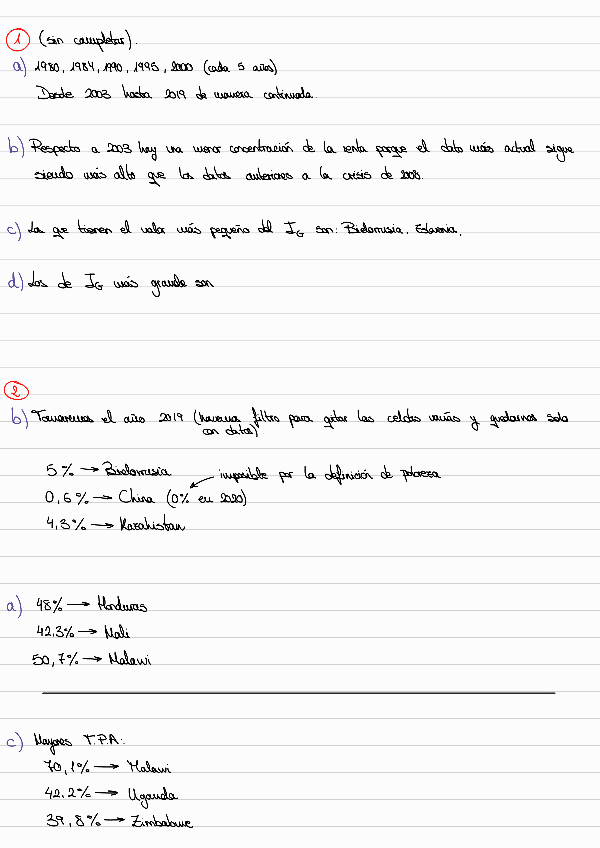 1 (sin completar).
a) 1980, 1984, 1990, 1995, 2000 (cada 5 años)
Desde 2003 hasta 2019 de manera continuada.
b) Respecto a 2003 hay una menor concentración de la renta porque el dato más actual sigue
siendo más alto que los datos anteriores a la crisis de 2008.
c) Los que tienen el valor más pequeño del IG son: Bielorrusia, Eslovenia,
d) Los de IG más grande son
2
b) Tomaremos el año 2019 (hacemos filtro para quitar las celdas vacías y quedarnos solo
con datos)
5% → Bielorrusia
imposible por la definición de pobreza
0,6% → China (0% en 2020)
4,3% → Kazahistan
a) 48% → Honduras
42,3% → Mali
50,7% → Malawi
c) Mayores T.P.A:
70,1% → Malawi
42,2% → Uganda
39,8% → Zimbabwe